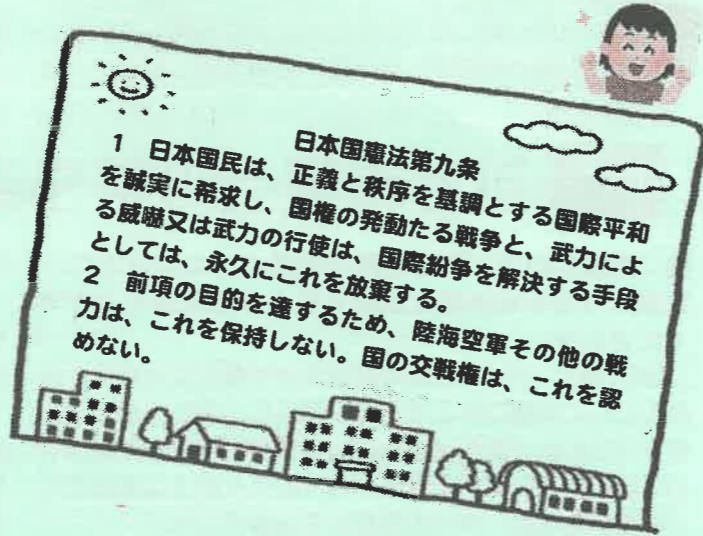 日本国憲法第九条
1 日本国民は、正義と秩序を基調とする国際平和
を誠実に希求し、国権の発動たる戦争と、武力によ
る威嚇又は武力の行使は、国際紛争を解決する手段
としては、永久にこれを放棄する。
2 前項の目的を達するため、陸海空軍その他の戦
力は、これを保持しない。国の交戦権は、これを認
めない。